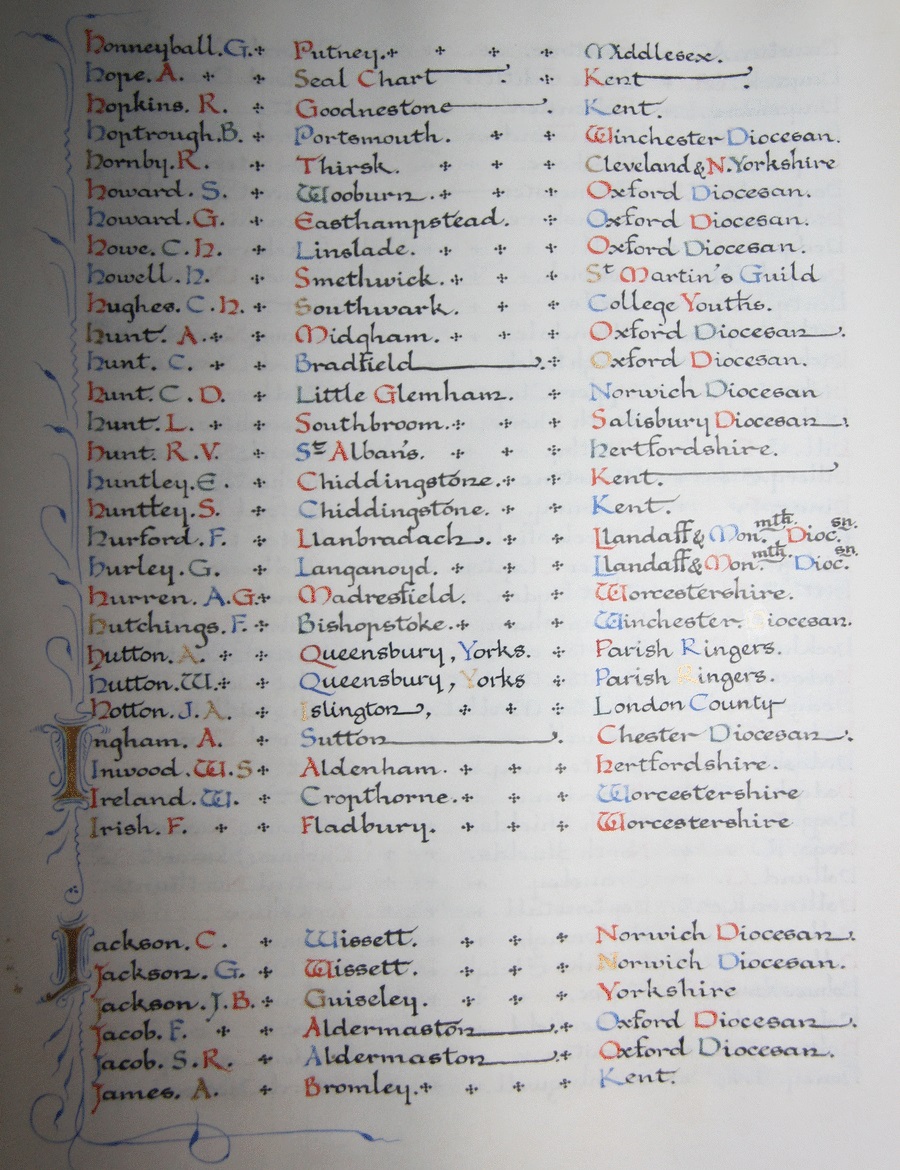 Honneyball. G. Putney. Middlesex.
Hope. A. Seal Chart Kent
Hopkins. R. Goodnestone Kent.
Hoptrough. B. Portsmouth. Winchester Diocesan.
Hornby. R. Thirsk. Cleveland & N. Yorkshire
Howard. S. Wooburn. Oxford Diocesan.
Howard. G. Easthampstead. Oxford Diocesan.
Howe. C. H. Linslade. Oxford Diocesan.
Howell. H. Smethwick. St Martin's Guild
Hughes. C. H. Southwark. College Youths.
Hunt. A. Midgham. Oxford Diocesan.
Hunt. C. Bradfield Oxford Diocesan.
Hunt. C. D. Little Glemham. Norwich Diocesan
Hunt. L. Southbroom. Salisbury Diocesan
Hunt. R. V. St Alban's. Hertfordshire.
Huntley. E. Chiddingstone. Kent.
Huntley. S. Chiddingstone. Kent.
Hurford. F. Llanbradach. Llandaff & Mon.mth. Dioc.sn.
Hurley. G. Langanoyd. Llandaff & Mon.mth. Dioc.sn.
Hurren. A. G. Madresfield. Worcestershire.
Hutchings. F. Bishopstoke. Winchester. Diocesan.
Hutton. A. Queensbury, Yorks. Parish Ringers.
Hutton. W. Queensbury, Yorks Parish Ringers.
Hotton. J. A. Islington, London County
Ingham. A. Sutton Chester Diocesan.
Inwood. W. S Aldenham. Hertfordshire.
Ireland. W. Cropthorne. Worcestershire
Irish. F. Fladbury. Worcestershire
Jackson. C. Wissett. Norwich Diocesan.
Jackson. G. Wissett. Norwich Diocesan.
Jackson. J. B. Guiseley. Yorkshire
Jacob. F. Aldermaston Oxford Diocesan.
Jacob. S. R. Aldermaston Oxford Diocesan.
James. A. Bromley. Kent.